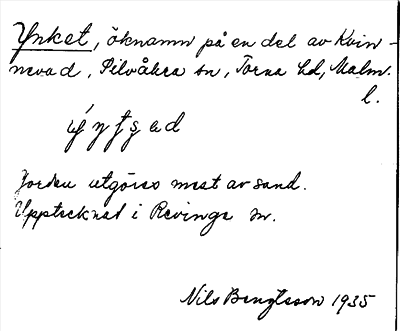 Ynket, öknamn på en del av Kvin-
nevad, Silvåkra sn, Torna hd, Malm.
l.
Jorden utgöres mest av sand.
Upptecknat i Revinge sn.
Nils Bengtsson 1935